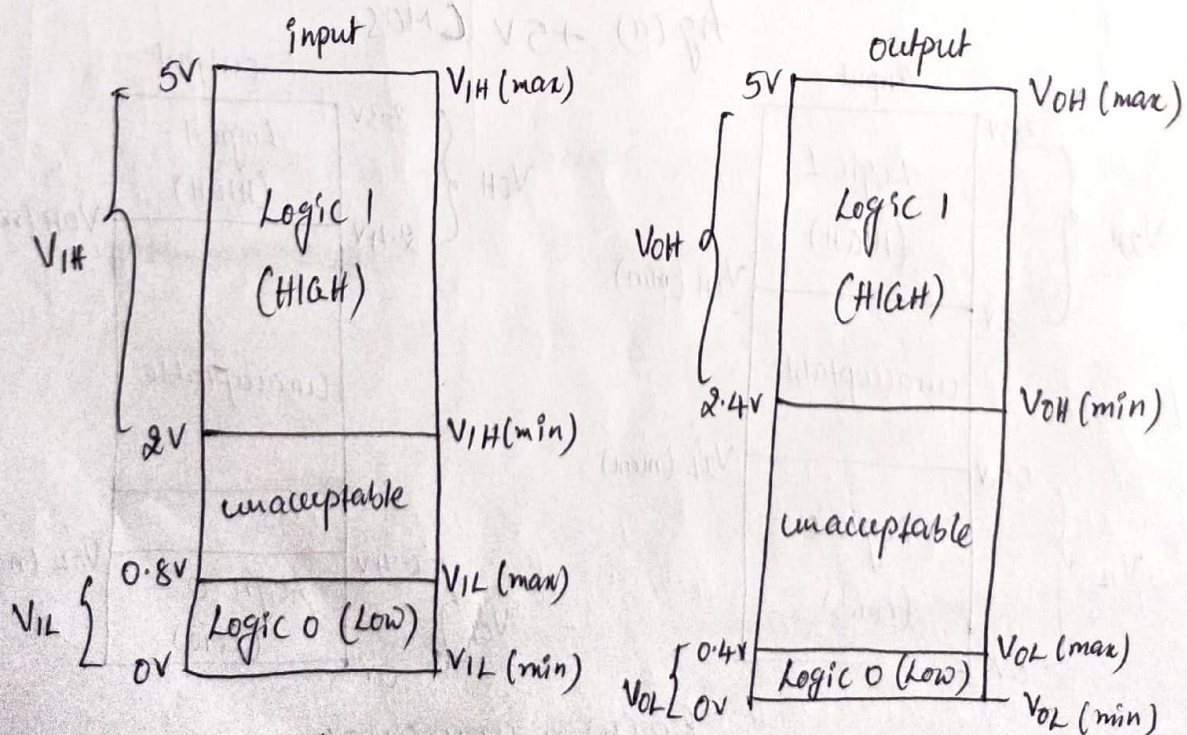 input
5V
VIH (max)
VIH
Logic 1
(HIGH)
2V
VIH (min)
unacceptable
0.8V
VIL (max)
VIL
Logic 0 (Low)
0V
VIL (min)
output
5V
VOH (max)
VOH
Logic 1
(HIGH)
2.4V
VOH (min)
unacceptable
0.4V
VOL (max)
VOL
Logic 0 (Low)
0V
VOL (min)
fig (a) +5V CMOS